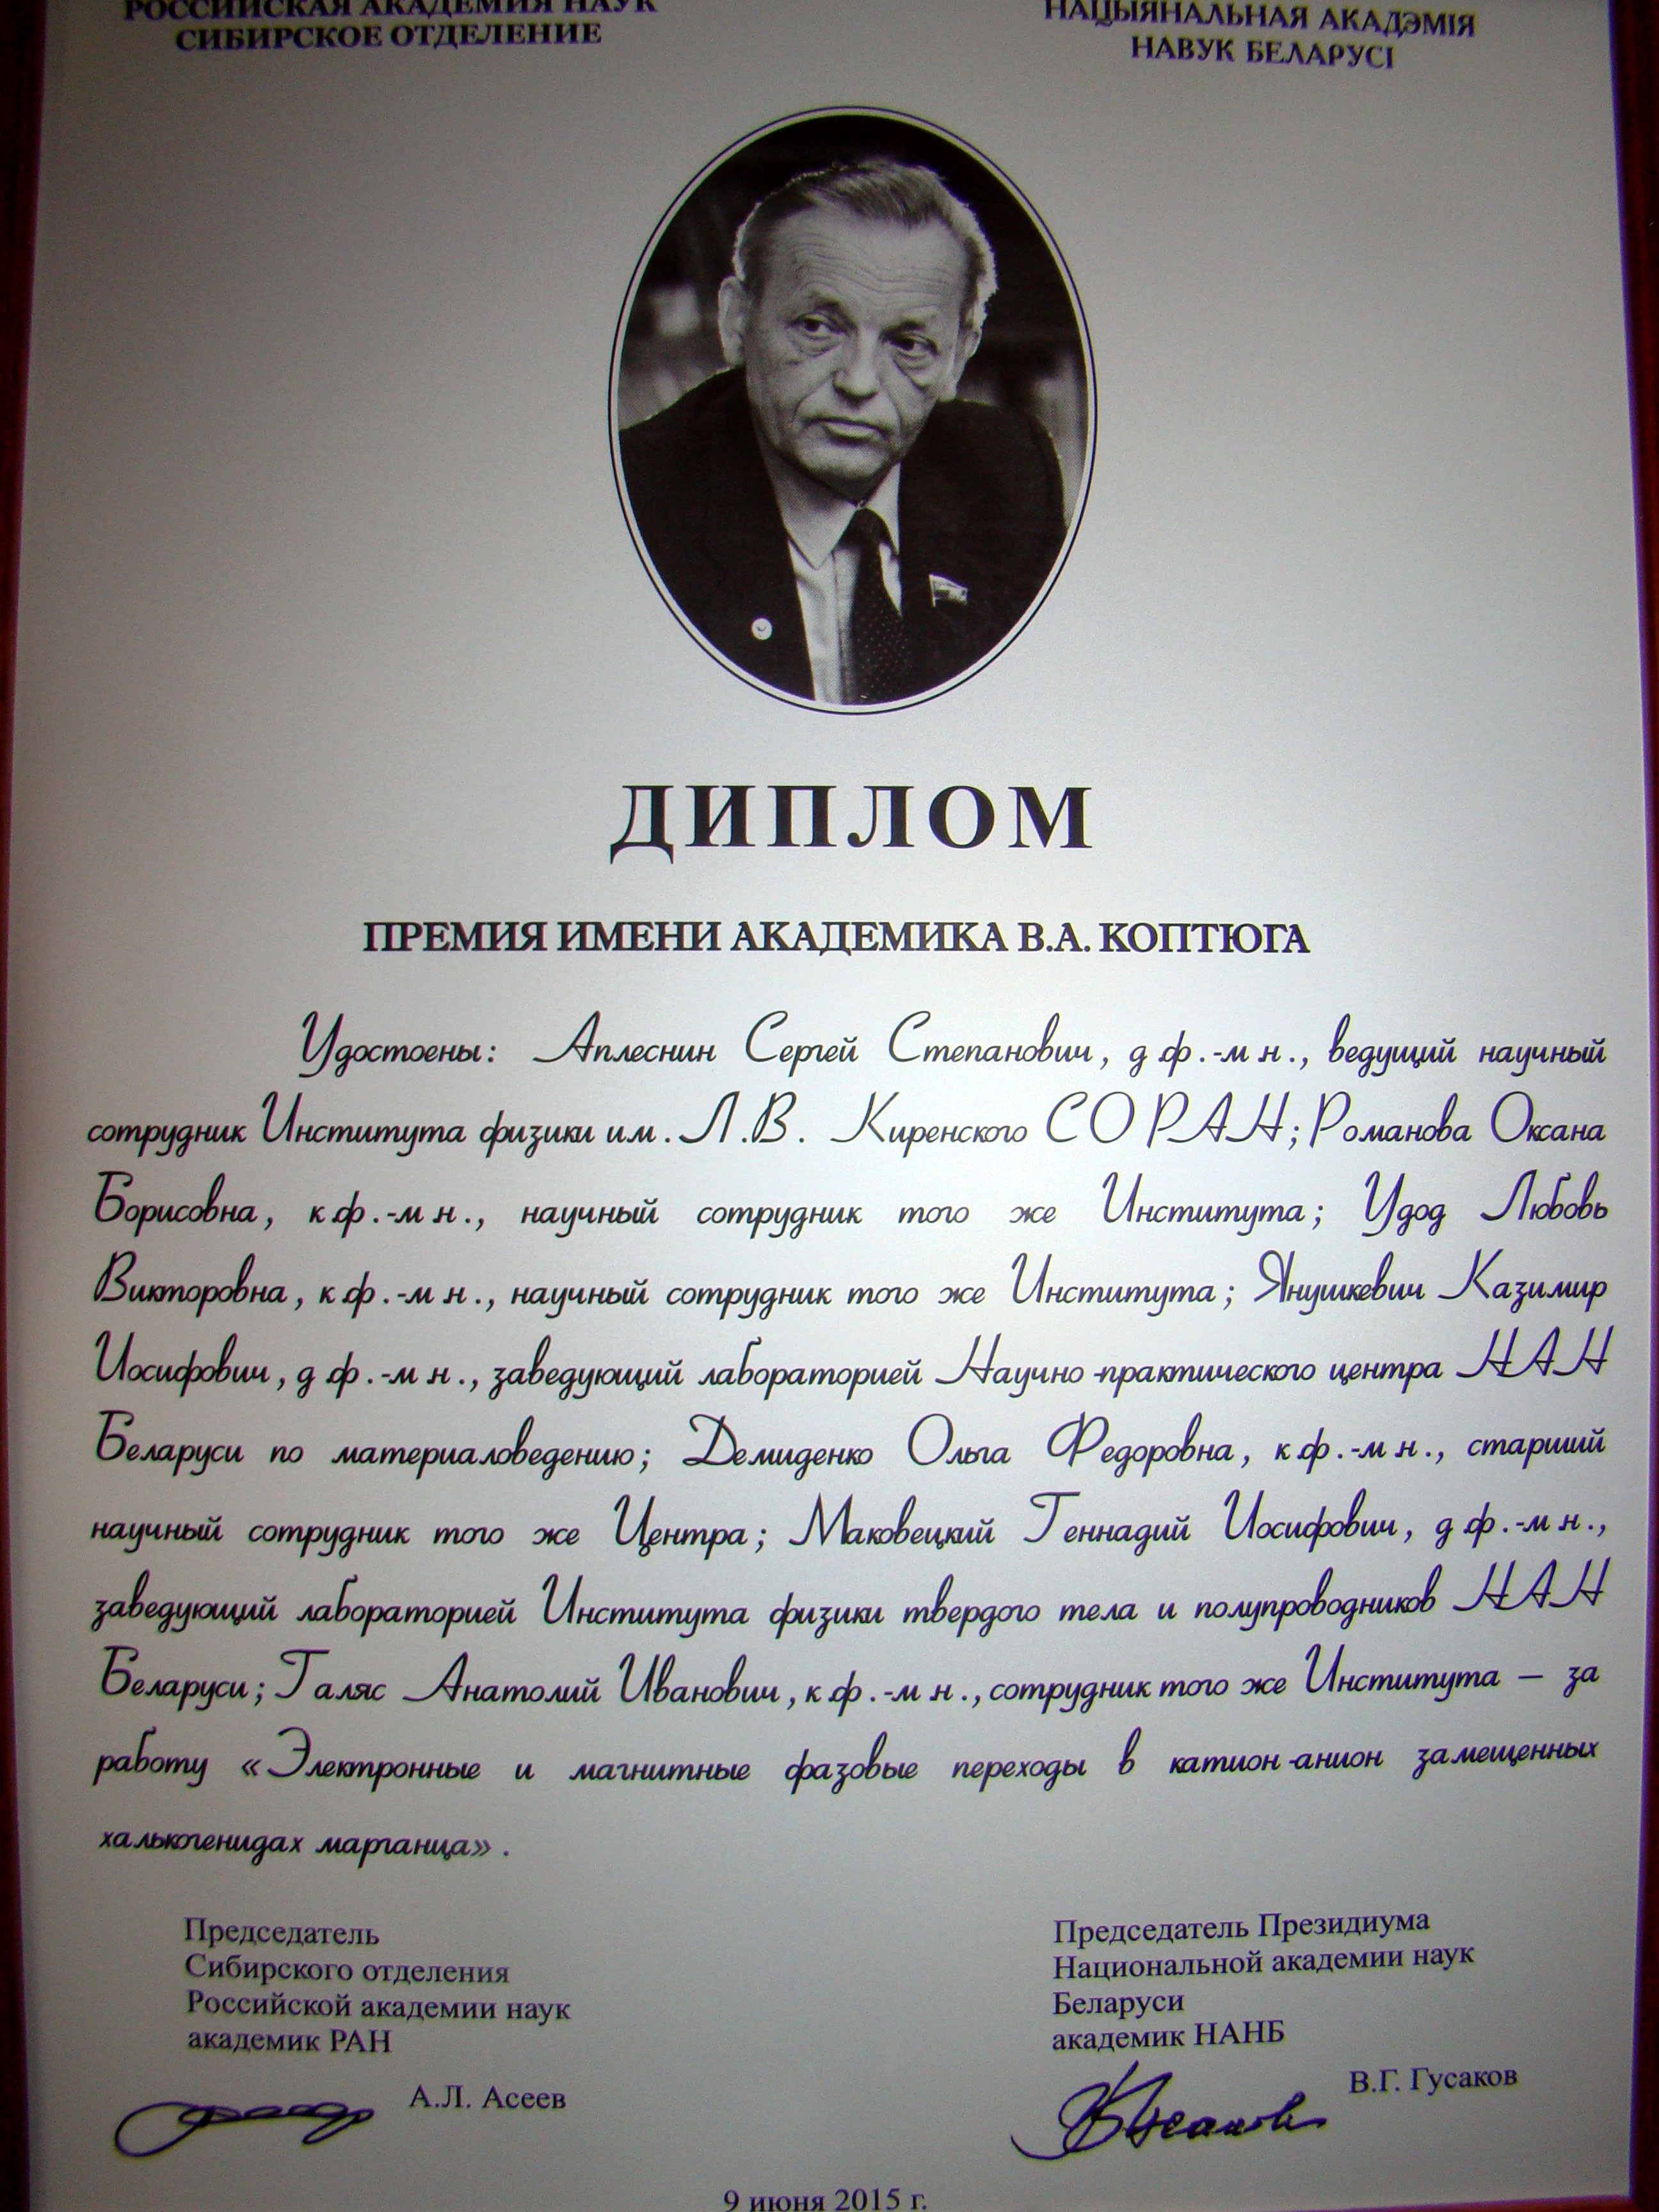 РОССИЙСКАЯ АКАДЕМИЯ НАУК
СИБИРСКОЕ ОТДЕЛЕНИЕ
НАЦЫЯНАЛЬНАЯ АКАДЭМІЯ
НАВУК БЕЛАРУСІ
ДИПЛОМ
ПРЕМИЯ ИМЕНИ АКАДЕМИКА В.А. КОПТЮГА
Удостоены: Аплеснин Сергей Степанович, д.ф.-м.н., ведущий научный
сотрудник Института физики им. Л.В. Киренского СО РАН; Романова Оксана
Борисовна, к.ф.-м.н., научный сотрудник того же Института; Удод Любовь
Викторовна, к.ф.-м.н., научный сотрудник того же Института; Янушкевич Казимир
Иосифович, д.ф.-м.н., заведующий лабораторией Научно-практического центра НАН
Беларуси по материаловедению; Демиденко Ольга Федоровна, к.ф.-м.н., старший
научный сотрудник того же Центра; Маковецкий Геннадий Иосифович, д.ф.-м.н.,
заведующий лабораторией Института физики твердого тела и полупроводников НАН
Беларуси; Галяс Анатолий Иванович, к.ф.-м.н., сотрудник того же Института – за
работу «Электронные и магнитные фазовые переходы в катион-анион замещенных
халькогенидах марганца».
Председатель
Сибирского отделения
Российской академии наук
академик РАН
А.Л. Асеев
Председатель Президиума
Национальной академии наук
Беларуси
академик НАНБ
В.Г. Гусаков
9 июня 2015 г.